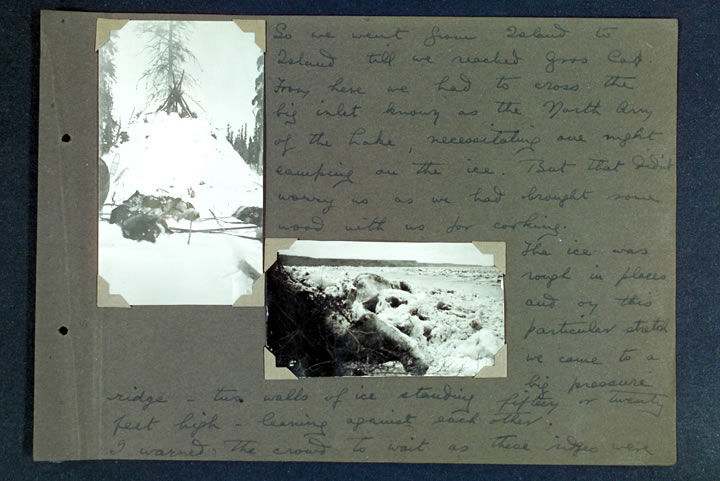 So we went from Island to
Island till we reached Gros Cap.
From here we had to cross the
big inlet known as the North Arm
of the Lake, necessitating one night
camping on the ice. But that didn't
worry us as we had brought some
wood with us for cooking.
The ice was
rough in places
and on this
particular stretch
we came to a
big pressure
ridge – two walls of ice standing fifteen or twenty
feet high – leaning against each other.
I warned the crowd to wait as these ridges were